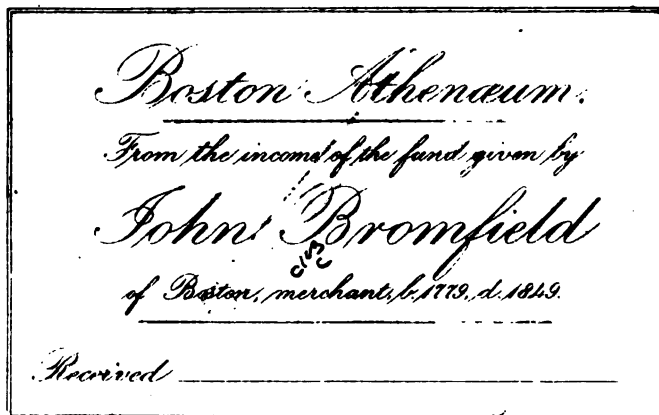 Boston Athenæum.
From the income of the fund given by
John Bromfield
of Boston, merchant, b. 1779, d. 1849.
Received